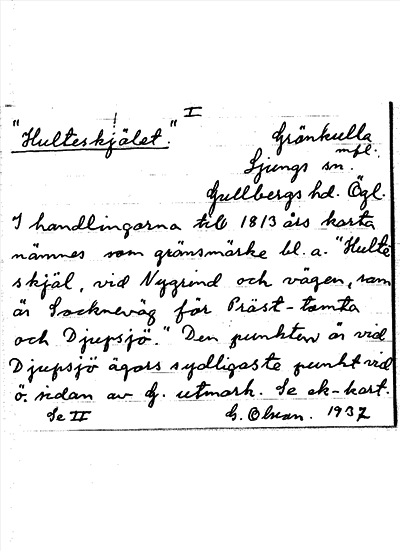 I
"Hulteskjälet."
Gränkulla
mfl.
Ljungs sn.
Gullbergs hd. Ögl.
I handlingarna till 1813 års karta
nämnes som gränsmärke bl. a. "Hulte
skjäl, vid Nygrind och vägen, som
är Sockneväg för Präst-tomta
och Djupsjö." Den punkten är vid
Djupsjö ägors sydligaste punkt vid
ö. sidan av G. utmark. Se ek-kart.
Se II
G. Olsson. 1937